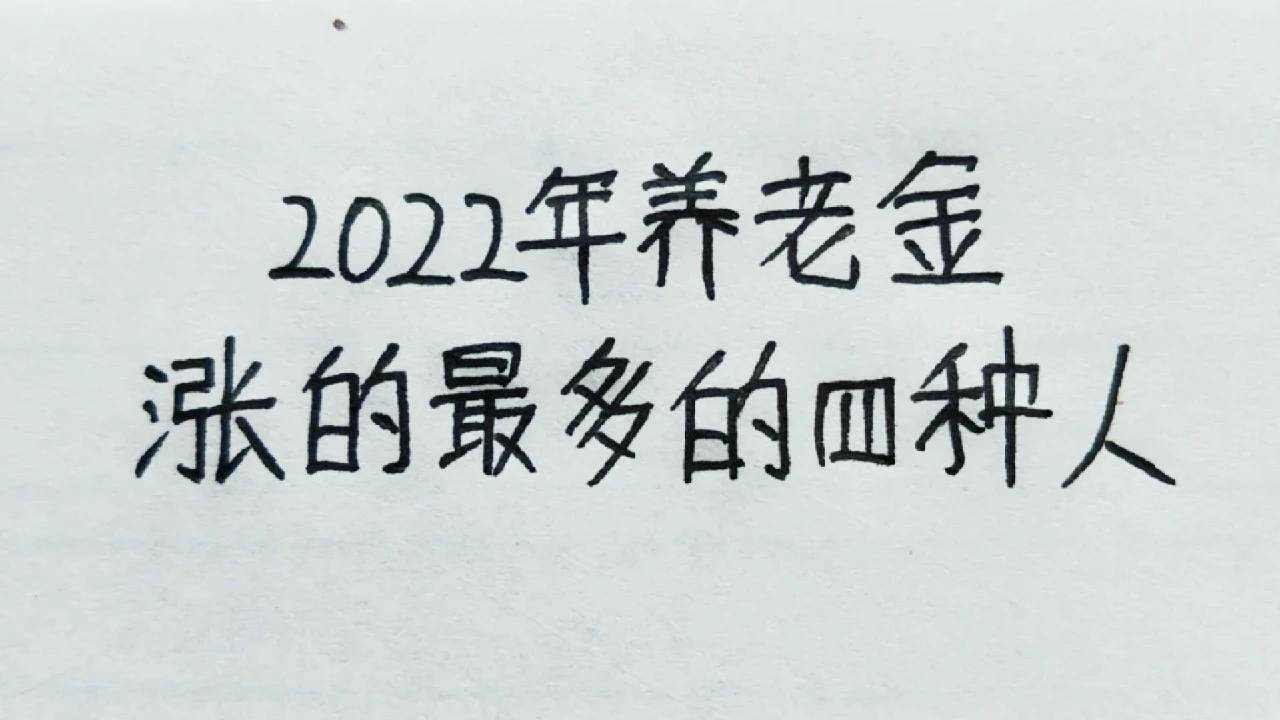 2022年养老金
涨的最多的四种人